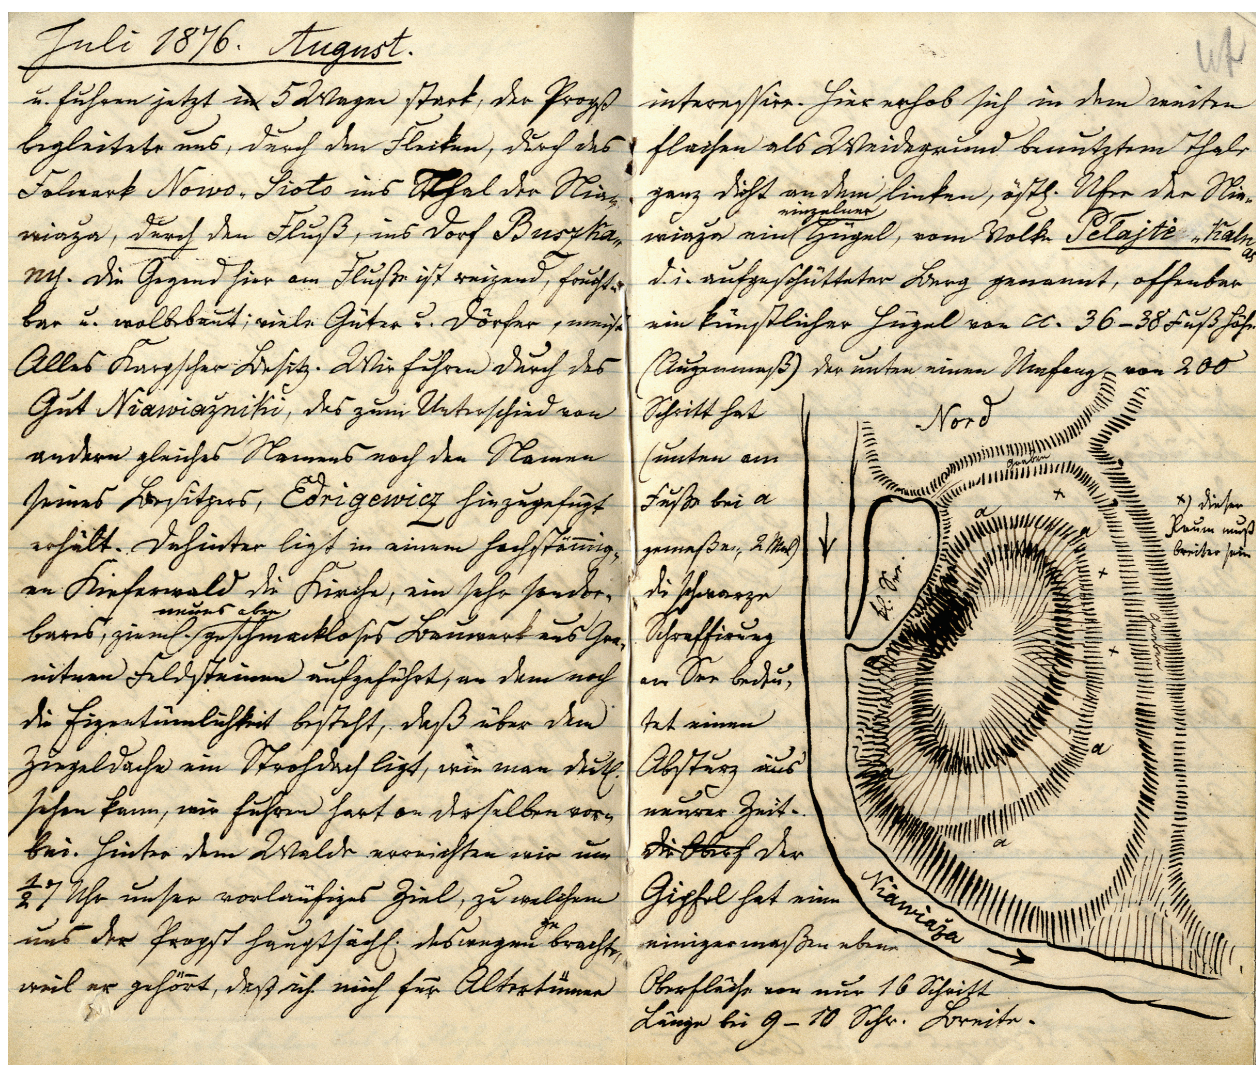 Juli 1876. August.
u. fuhren jetzt in 5 Wagen stark, der Propst
begleitete uns, durch den Flecken, durch das
Folwark Nowo-Sioto ins Thal der Nia-
wiaza, durch den Fluß, ins Dorf Buszka-
ny. Die Gegend hier am Fluße ist reizend, frucht-
bar u. wolbebaut; viele Güter u. Dörfer, meist
Alles Karpscher Besitz. Wir fuhren durch das
Gut Niawiażniki, das zum Unterschied von
andern gleiches Namens noch den Namen
seines Besitzers, Edrigewicz hinzugefügt
erhält. Dahinter ligt in einem hochstämmig-
en Kieferwald die Kirche, ein sehr sonder-
neues aber
bares, zieml. geschmackloses Bauwerk aus Gra-
nitnen Feldsteinen aufgeführt, an dem noch
die Eigentümlichkeit besteht, daß über dem
Ziegeldache ein Strohdach ligt, wie man deutl.
sehen kann, wir fuhren hart an derselben vor-
bei. Hinter dem Walde erreichten wir um
½7 Uhr unser vorläufiges Ziel, zu welchem
uns der Propst hauptsächl. deswegen gebracht,
weil er gehört, daß ich mich für Altertümer
interessire. Hier erhob sich in dem weiten
flachen als Weidegrund benutztem Thale
ganz dicht an dem linken, östl. Ufer der Nia-
einzelner
wiaza ein Hügel, vom Volke Pełajtė-Kaln
as
d. i. aufgeschütteter Berg genannt, offenbar
ein künstlicher Hügel von cc. 36–38 Fuß Höhe
(Augenmaß) der unten einen Umfang von 200
Schritt hat
(unten am
Fuße bei a
gemaßen, 2 Mal)
die schwarze
Schraffirung
am See bedeu-
tet einen
Absturz aus
neurer Zeit.
die Oberf der
Gipfel hat eine
einigermaßen ebene
Oberfläche von nur 16 Schritt
Länge bei 9–10 Schr. Breite.
Nord
Graben
x
a
a
x) dieser
Raum muß
breiter sein
x
kl. See.
Graben
x
a
a
a
Niawiaża